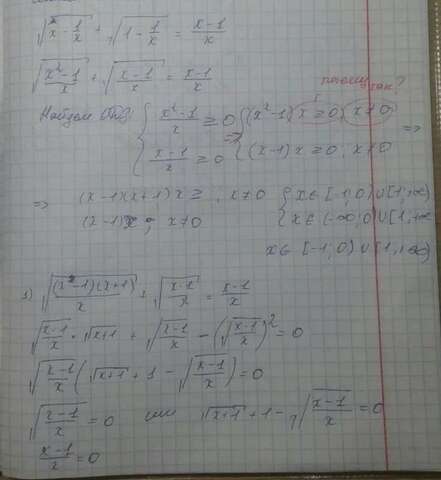 √(x - 1/x) + √(1 - 1/x) = (x-1)/x
√((x²-1)/x) + √((x-1)/x) = (x-1)/x
почему так?
Найдем ОДЗ: { (x²-1)/x ≥ 0 => { (x²-1) x ≥ 0, x ≠ 0 =>
{ (x-1)/x ≥ 0 { (x-1) x ≥ 0, x ≠ 0
=> (x-1)(x+1) x ≥ , x ≠ 0 { x ∈ [-1; 0) ∪ [1, +∞)
(x-1)x ; x ≠ 0 { x ∈ (-∞; 0) ∪ [1, +∞
x ∈ [-1; 0) ∪ [1, +∞)
1) √((x-1)(x+1)/x) + √((x-1)/x) = (x-1)/x
√((x-1)/x) · √(x+1) + √((x-1)/x) - (√((x-1)/x))² = 0
√((x-1)/x) (√(x+1) + 1 - √((x-1)/x)) = 0
√((x-1)/x) = 0 или √(x+1) + 1 - √((x-1)/x) = 0
(x-1)/x = 0